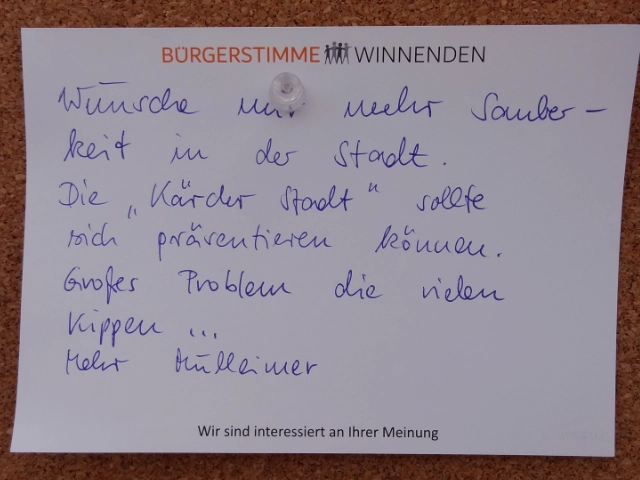 BÜRGERSTIMME WINNENDEN
Wünsche mir mehr Sauber-
keit in der Stadt.
Die „Kärcher Stadt" sollte
sich präventieren können.
Großes Problem die vielen
Kippen ...
Mehr Mülleimer
Wir sind interessiert an Ihrer Meinung